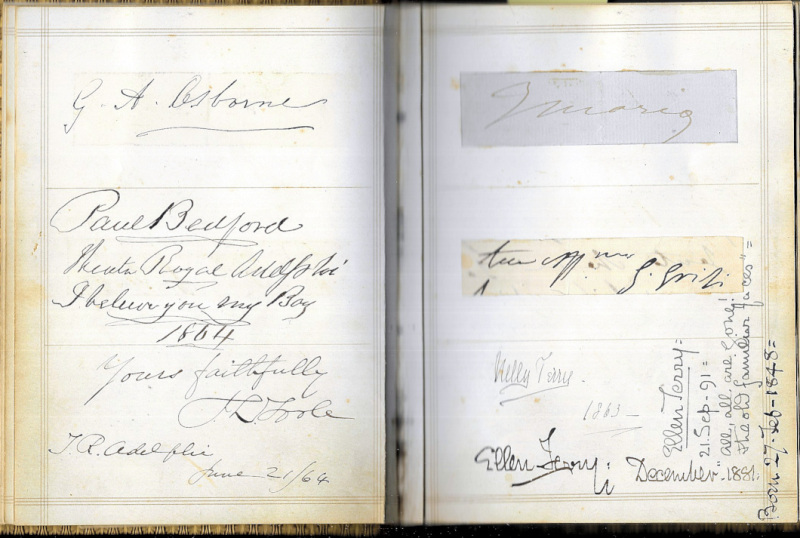 G. A. Osborne
Paul Bedford
Theatre Royal Addlphi
I believe you my Boy
1864
Yours faithfully
J L Toole
T. R. Adelphi
June 21/64
Mario
G. Grisi
Nelly Terry.
1863 —
Ellen Terry:
December - 1881.
Ellen Terry:
21. Sep - 91 =
"All, all, are gone!
The old familiar faces" =
Born 27. Feb - 1848 =